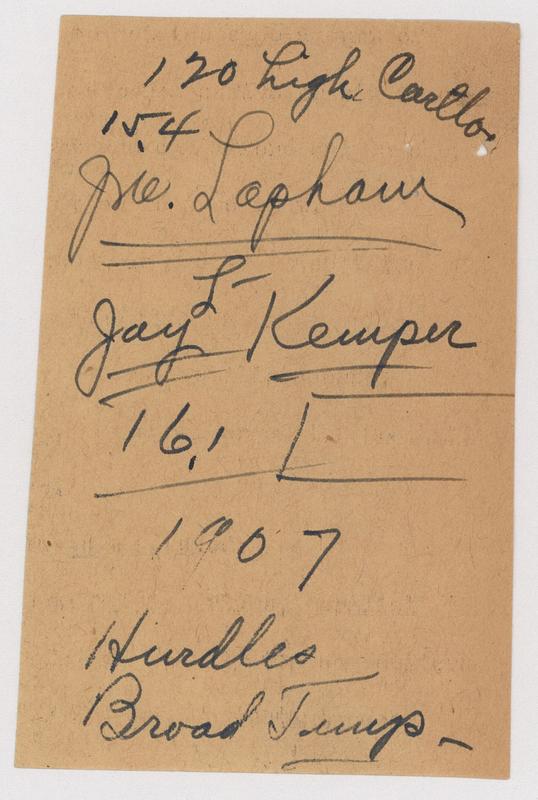 120 high Carlton
15.4
Jno. Lapham
L-
Jay Kemper
16.1
1907
Hurdles
Broad Jump -